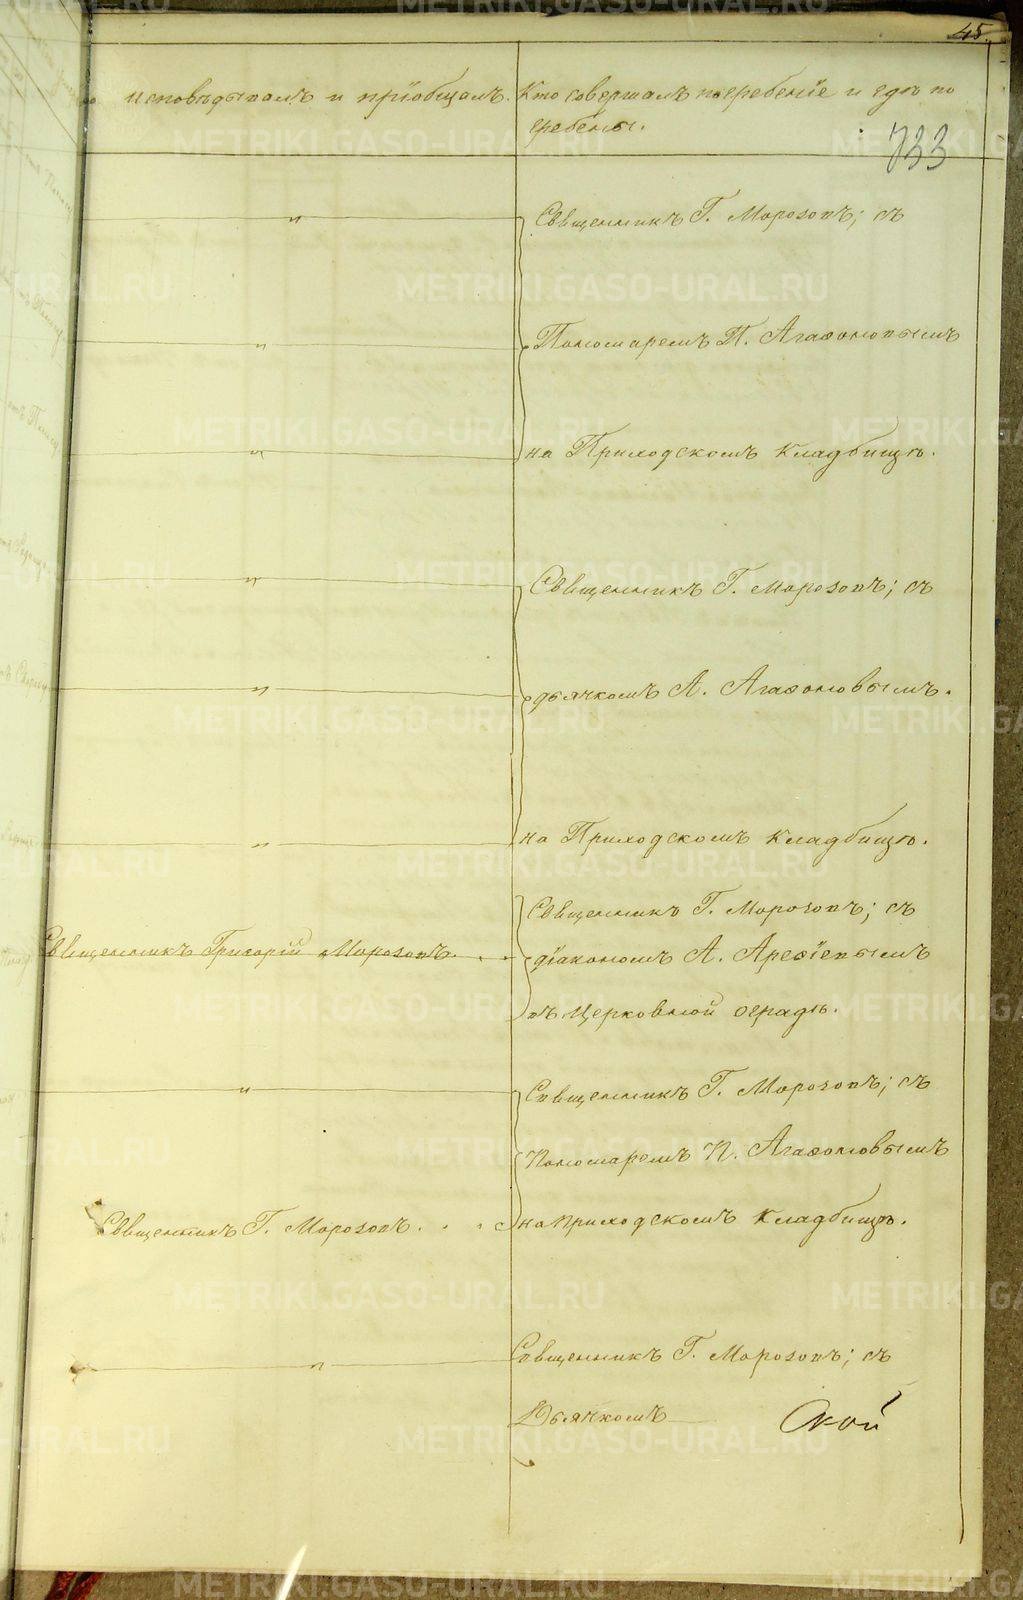 45.
исповѣдывалъ и пріобщалъ.
Кто совершалъ погребеніе и гдѣ по
гребены.
733
" Священникъ Г. Морозовъ; съ
" Пономаремъ П. Агафоновымъ
" на Приходскомъ кладбищѣ.
" Священникъ Г. Морозовъ; съ
" дьячкомъ А. Агафоновымъ.
" на Приходскомъ кладбищѣ.
Священникъ Г. Морозовъ; съ
Священникъ Григорій Морозовъ. діакономъ А. Арефіевымъ
въ Церковной оградѣ.
" Священникъ Г. Морозовъ; съ
Пономаремъ П. Агафоновымъ
Священникъ Г. Морозовъ. на приходскомъ кладбищѣ.
" Священникъ Г. Морозовъ; съ
Дьячкомъ
METRIKI.GASO-URAL.RU